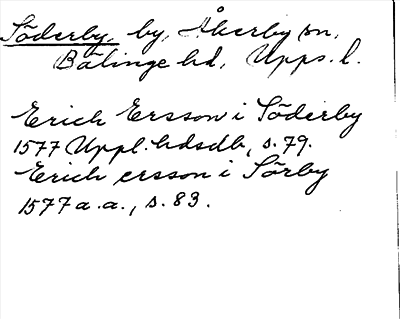 Söderby, by, Åkerby sn,
Bälinge hd, Upps. l.
Erich Ersson i Söderby
1577 Uppl. hdsdb, s. 79.
Erich ersson i Sörby
1577 a. a., s. 83.